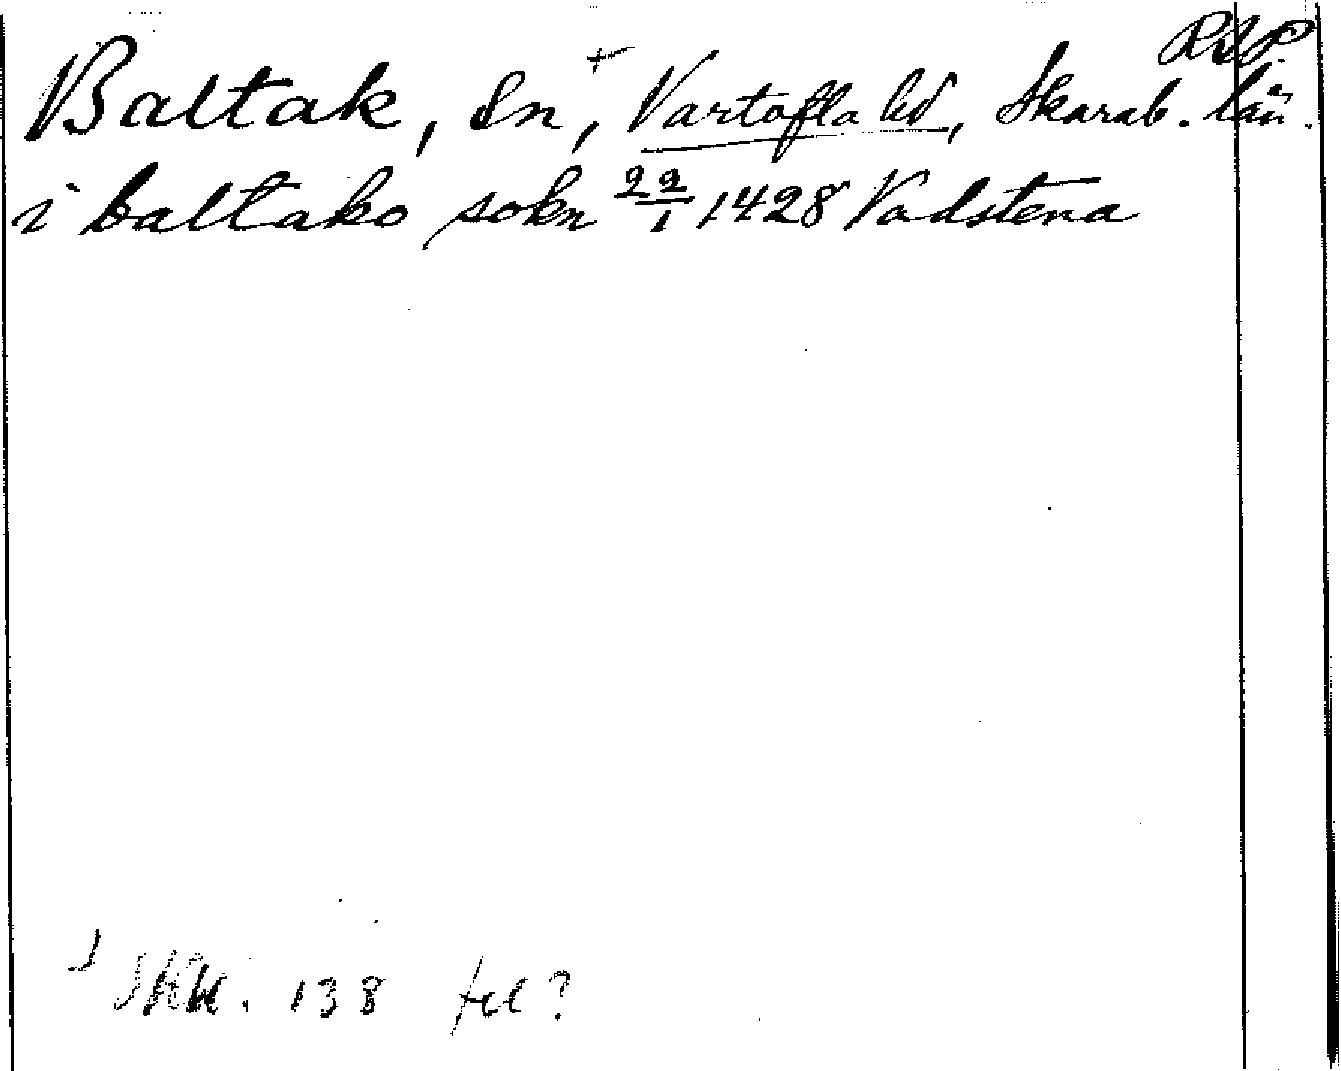 RAP.
Baltak, Sn, + Vartofta hd, Skarab. län.
i baltako sokn 22/1 1428 Vadstena
138 fel?